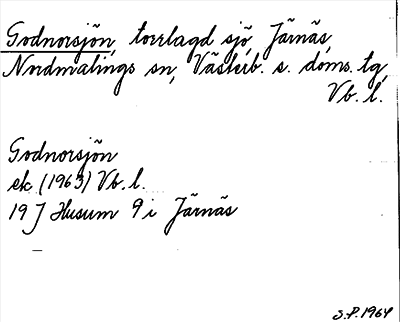 Godnorsjön, torrlagd sjö, Järnäs,
Nordmalings sn, Västerb. s. doms. tg,
Vb. l.
Godnorsjön
ek (1963) Vb. l.
19 J Husum 9 i Järnäs
S.P. 1964